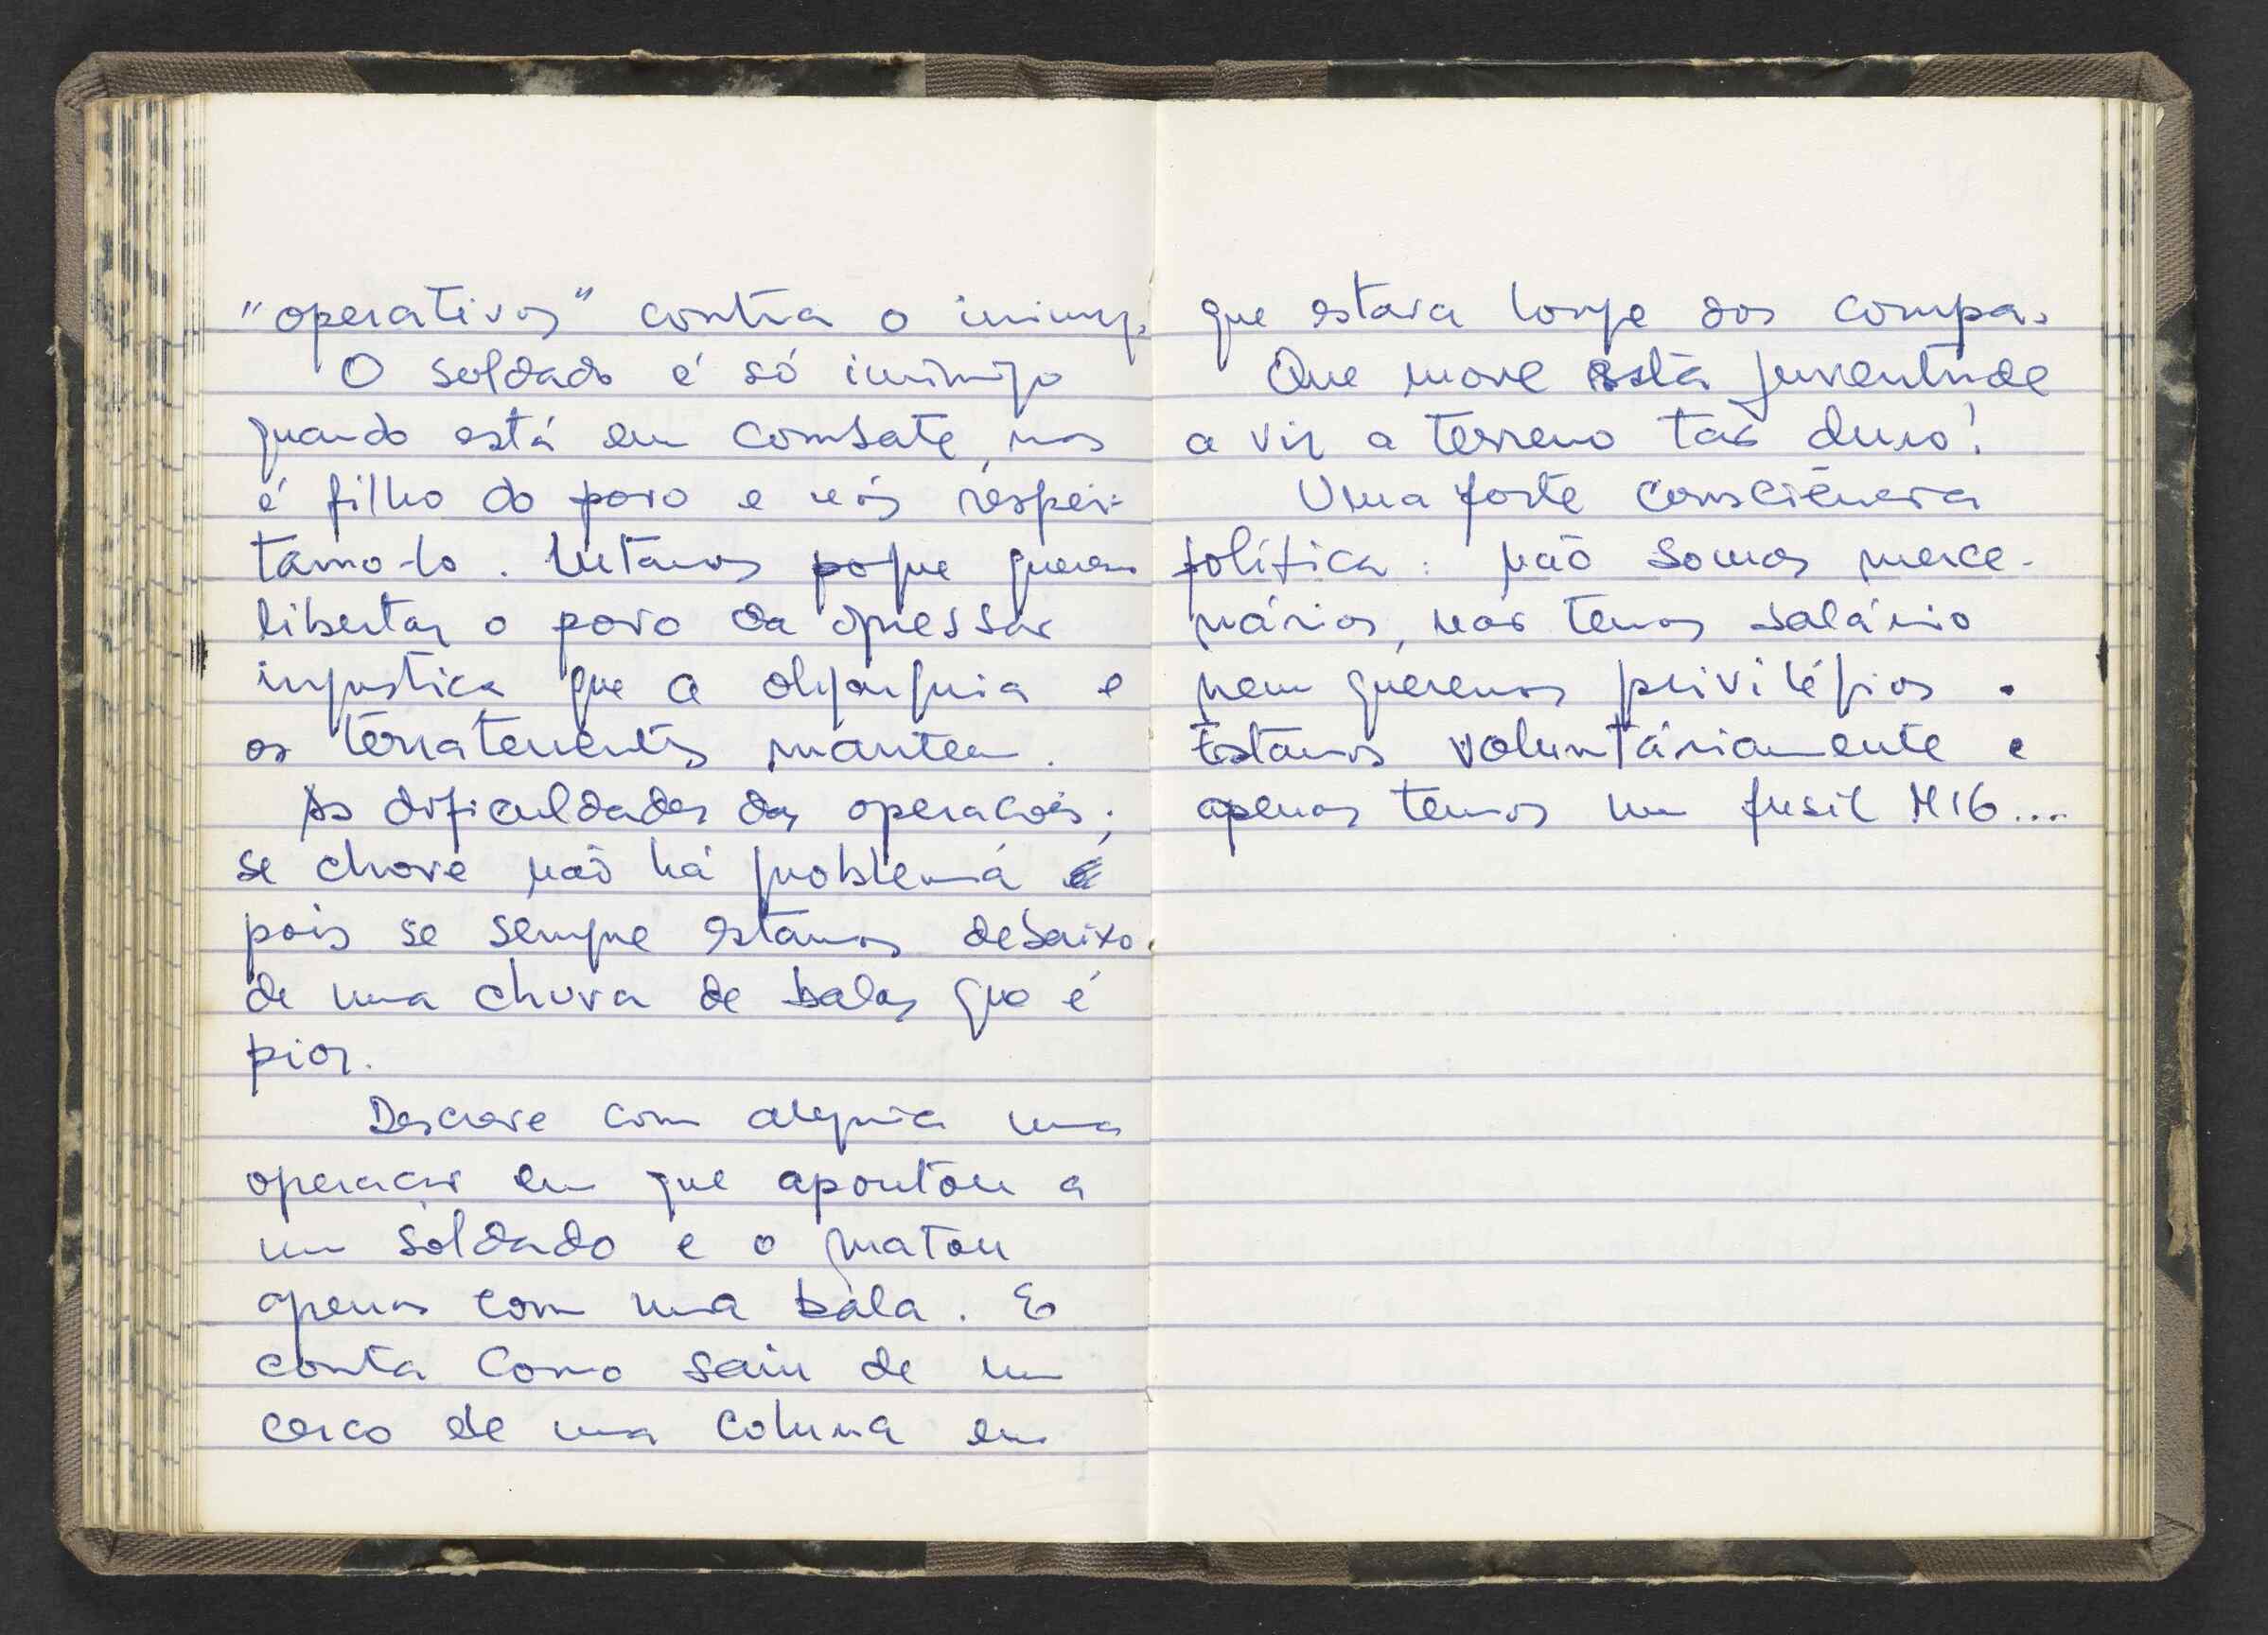 "operativos" contra o inimigo
O soldado é só inimigo
quando está em combate, mas
é filho do povo e nós respei-
tamo-lo. Lutamos poque queremos
libertar o povo da opressão
injustica que a oligarquia e
os terratenentes mantem.
As dificuldades das operacões;
se chove não há problema
pois se sempre estamos debaixo
de uma chuva de balas que é
pior.
Descreve com alegria uma
operacão em que apontou a
um soldado e o matou
apenas com uma bala. E
conta como saiu de um
cerco de uma coluna em
que estava longe dos compas.
Que move esta juventude
a vir a terreno tão duro!
Uma forte consciência
política: não somos merce-
nários, não temos salário
nem queremos privilégios.
Estamos voluntáriamente e
apenas temos um fusil M16...